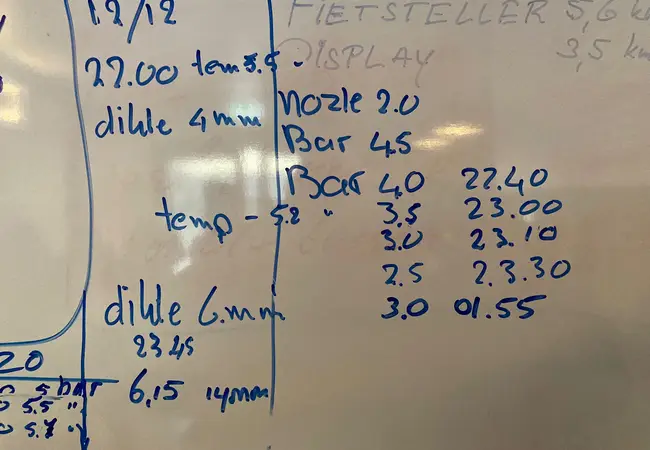 12/12
22.00 tem 5.5
dikke 4mm
temp - 5.2 "
dikke 6.mm
23 45
6,15 14mm
FIETSTELLER 5,6 km
DISPLAY 3,5 km
Nozle 2.0
Bar 4.5
Bar 4.0 22.40
3.5 23.00
3.0 23.10
2.5 2.3.30
3.0 01.55
20
5 bar
5.5 "
5.7 "